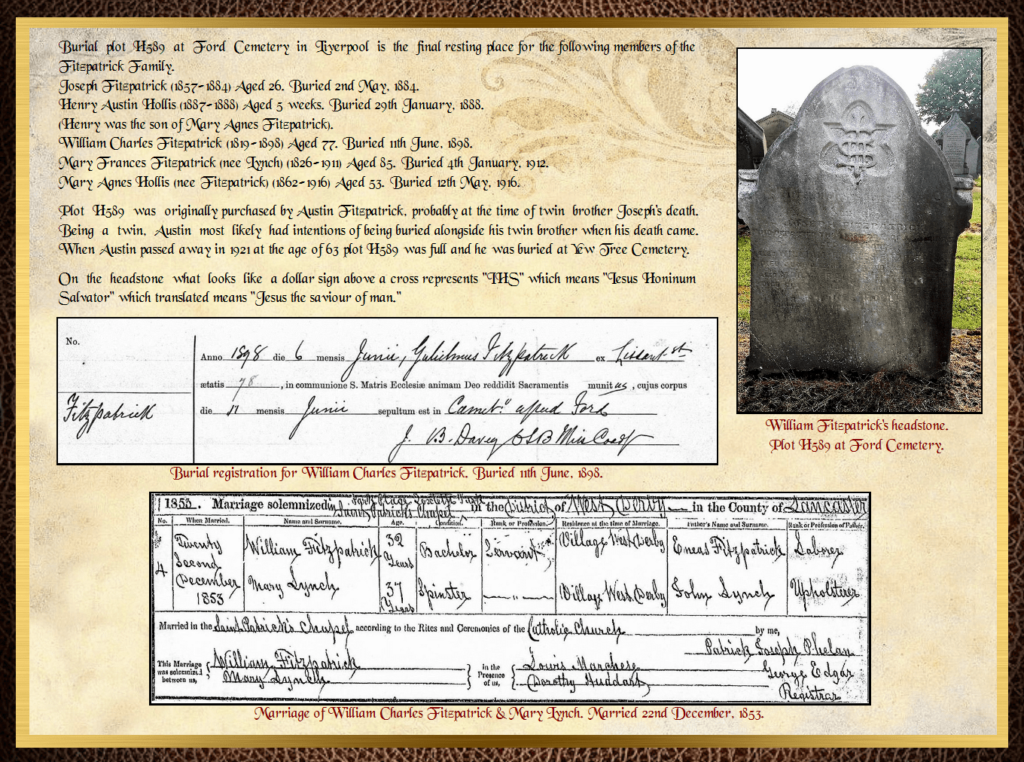 Burial plot H589 at Ford Cemetery in Liverpool is the final resting place for the following members of the
Fitzpatrick Family.
Joseph Fitzpatrick (1857-1884) Aged 26. Buried 2nd May, 1884.
Henry Austin Hollis (1887-1888) Aged 5 weeks. Buried 29th January, 1888.
(Henry was the son of Mary Agnes Fitzpatrick).
William Charles Fitzpatrick (1819-1898) Aged 77. Buried 11th June, 1898.
Mary Frances Fitzpatrick (nee Lynch) (1826-1911) Aged 85. Buried 4th January, 1912.
Mary Agnes Hollis (nee Fitzpatrick) (1862-1916) Aged 53. Buried 12th May, 1916.
Plot H589 was originally purchased by Austin Fitzpatrick, probably at the time of twin brother Joseph's death.
Being a twin, Austin most likely had intentions of being buried alongside his twin brother when his death came.
When Austin passed away in 1921 at the age of 63 plot H589 was full and he was buried at Yew Tree Cemetery.
On the headstone what looks like a dollar sign above a cross represents "IHS" which means "Iesus Honinum
Salvator" which translated means "Jesus the saviour of man."
No.
Fitzpatrick
Anno 1898 die 6 mensis Junii, Gulielmus Fitzpatrick ex
ætatis 78, in communione S. Matris Ecclesiæ animam Deo reddidit Sacramentis munitus, cujus corpus
die 11 mensis Junii sepultum est in Ford
J. B. Davey OSB
Burial registration for William Charles Fitzpatrick. Buried 11th June, 1898.
William Fitzpatrick's headstone.
Plot H589 at Ford Cemetery.
1853. Marriage solemnized in Saint Patrick's Chapel in the District of West Derby in the County of Lancaster
No. When Married. Name and Surname. Age. Condition. Rank or Profession. Residence at the time of Marriage. Father's Name and Surname. Rank or Profession of Father.
4 Twenty Second December 1853
William Fitzpatrick 32 Years Bachelor Servant Village West Derby Eneas Fitzpatrick Laborer
Mary Lynch 37 Years Spinster — „ — Village West Derby John Lynch Upholsterer
Married in the Saint Patrick's Chapel according to the Rites and Ceremonies of the Catholic Church by me,
Patrick Joseph Phelan
This Marriage was solemnized between us, William Fitzpatrick Mary Lynch in the Presence of us, Louis Marchese Dorothy Huddart
George Edgar
Registrar
Marriage of William Charles Fitzpatrick & Mary Lynch. Married 22nd December, 1853.